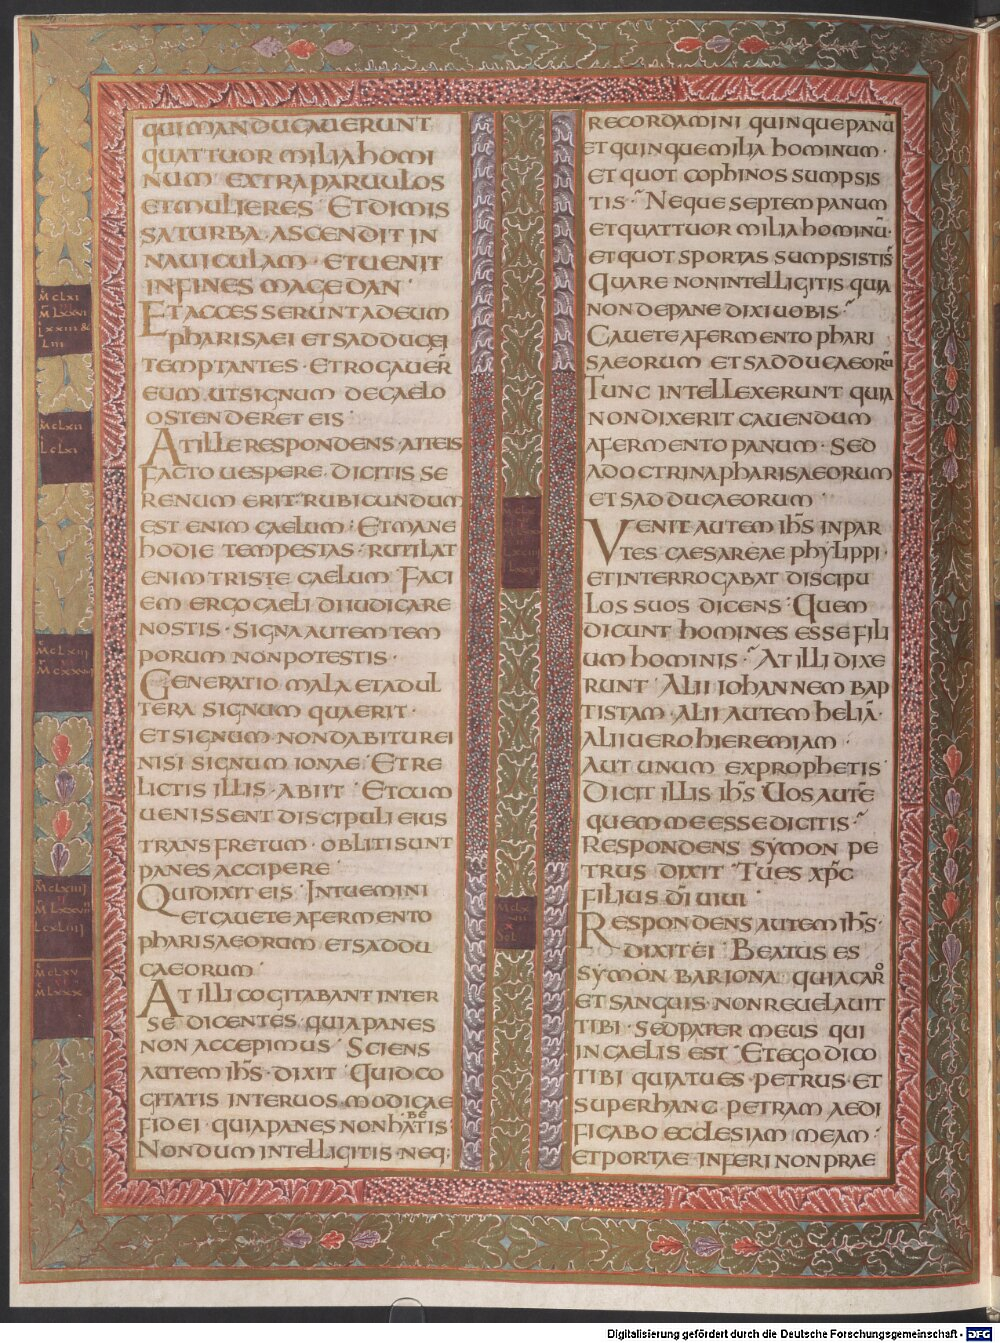 QUI MANDUCAVERUNT
QUATTUOR MILIA HOMI
NUM EXTRA PARUULOS
ET MULIERES · ET DIMIS
SA TURBA · ASCENDIT IN
NAUICULAM · ET UENIT
IN FINES MAGEDAN ·
ET ACCESSERUNT AD EUM
PHARISAEI ET SADDUCEI
TEMPTANTES · ET ROGAUER̄
EUM · UT SIGNUM DE CAELO
OSTENDERET EIS ·
AT ILLE RESPONDENS · AIT EIS
FACTO UESPERE · DICITIS SE
RENUM ERIT · RUBICUNDUM
EST ENIM CAELUM · ET MANE
HODIE TEMPESTAS · RUTILAT
ENIM TRISTE CAELUM · FACI
EM ERGO CAELI DIIUDICARE
NOSTIS · SIGNA AUTEM TEM
PORUM NON POTESTIS ·
GENERATIO MALA ET ADUL
TERA SIGNUM QUAERIT ·
ET SIGNUM · NON DABITUR EI
NISI SIGNUM IONAE · ET RE
LICTIS ILLIS · ABIIT · ET CUM
UENISSENT DISCIPULI EIUS
TRANS FRETUM · OBLITI SUNT
PANES ACCIPERE ·
QUI DIXIT EIS · INTUEMINI
ET CAUETE A FERMENTO
PHARISAEORUM ET SADDU
CAEORUM ·
AT ILLI COGITABANT INTER
SE DICENTES · QUIA PANES
NON ACCEPIMUS · SCIENS
AUTEM IHS · DIXIT · QUID CO
GITATIS INTER UOS MODICAE
FIDEI · QUIA PANES NON HABETIS ·
NONDUM INTELLIGITIS · NEQ;
RECORDAMINI QUINQUE PANŪ
ET QUINQUE MILIA HOMINUM ·
ET QUOT COPHINOS SUMPSIS
TIS · NEQUE SEPTEM PANUM
ET QUATTUOR MILIA HOMINŪ ·
ET QUOT SPORTAS SUMPSISTIS
QUARE NON INTELLIGITIS QUIA
NON DE PANE DIXI UOBIS ·
CAUETE A FERMENTO PHARI
SAEORUM ET SADDUCAEORŪ
TUNC INTELLEXERUNT QUIA
NON DIXERIT CAUENDUM
A FERMENTO PANUM · SED
A DOCTRINA PHARISAEORUM
ET SADDUCAEORUM ·
VENIT AUTEM IHS IN PAR
TES CAESAREAE PHYLIPPI ·
ET INTERROGABAT DISCIPU
LOS SUOS DICENS · QUEM
DICUNT HOMINES ESSE FILI
UM HOMINIS · AT ILLI DIXE
RUNT · ALII IOHANNEM BAP
TISTAM · ALII AUTEM HELIĀ ·
ALII UERO HIEREMIAM ·
AUT UNUM EX PROPHETIS ·
DICIT ILLIS IHS · UOS AUTĒ
QUEM ME ESSE DICITIS ·
RESPONDENS SYMON PE
TRUS DIXIT · TU ES XPC
FILIUS DI UIUI ·
RESPONDENS AUTEM IHS ·
DIXIT EI · BEATUS ES
SYMON BARIONA · QUIA CARO
ET SANGUIS · NON REUELAUIT
TIBI · SED PATER MEUS QUI
IN CAELIS EST · ET EGO DICO
TIBI QUIA TU ES · PETRUS · ET
SUPER HANC PETRAM AEDI
FICABO ECCLESIAM MEAM ·
ET PORTAE · INFERI NON PRAE
M CLXI
M LXXVI
LXXIII &
LIII
M CLXII
L CLXI
M CLXIII
M CXXXVI
M CLXIIII
M LXXVII
L CXLIIII
M CLXV
M LXXX
Digitalisierung gefördert durch die Deutsche Forschungsgemeinschaft - DFG